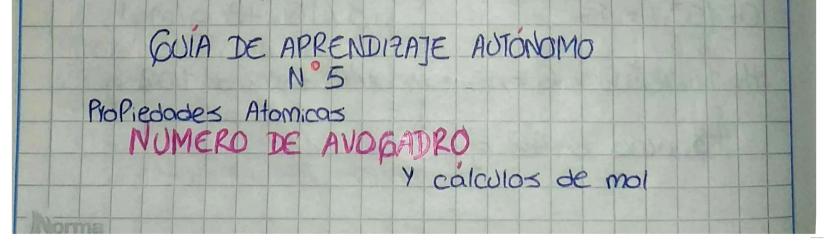 GUÍA DE APRENDIZAJE AUTÓNOMO
N°5
Propiedades Atomicas
NUMERO DE AVOGADRO
y cálculos de mol
Norma